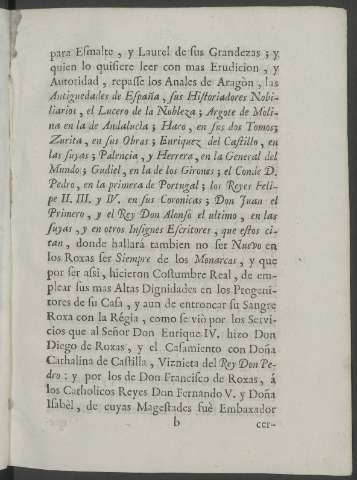 para Esmalte , y Laurel de sus Grandezas ; y
quien lo quisiere leer con mas Erudicion , y
Autoridad , repasse los Anales de Aragòn , las
Antiguedades de España , sus Historiadores Nobi-
liarios , el Lucero de la Nobleza ; Argote de Moli-
na en la de Andalucia ; Haro , en sus dos Tomos;
Zurita , en sus Obras ; Enriquez del Castillo , en
las suyas ; Palencia , y Herrera , en la General del
Mundo ; Gudiel , en la de los Girones ; el Conde D.
Pedro , en la primera de Portugal ; los Reyes Feli-
pe II. III. y IV. en sus Coronicas ; Don Juan el
Primero , y el Rey Don Alonso el ultimo , en las
suyas , y en otros Insignes Escritores , que estos ci-
tan , donde hallará tambien no ser Nuevo en
los Roxas ser Siempre de los Monarcas , y que
por ser assi , hicieron Costumbre Real , de em-
plear sus mas Altas Dignidades en los Progeni-
tores de su Casa , y aun de entroncar su Sangre
Roxa con la Règia , como se viò por los Servi-
cios que al Señor Don Enrique IV. hizo Don
Diego de Roxas , y el Casamiento con Doña
Cathalina de Castilla , Viznieta del Rey Don Pe-
dro : y por los de Don Francisco de Roxas , á
los Catholicos Reyes Don Fernando V. y Doña
Isabèl , de cuyas Magestades fuè Embaxador
b cer-